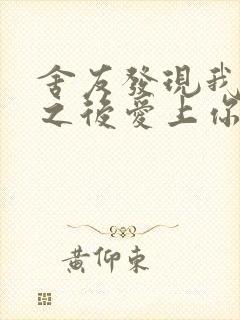 舍友發現我
之後愛上你
黃仰東